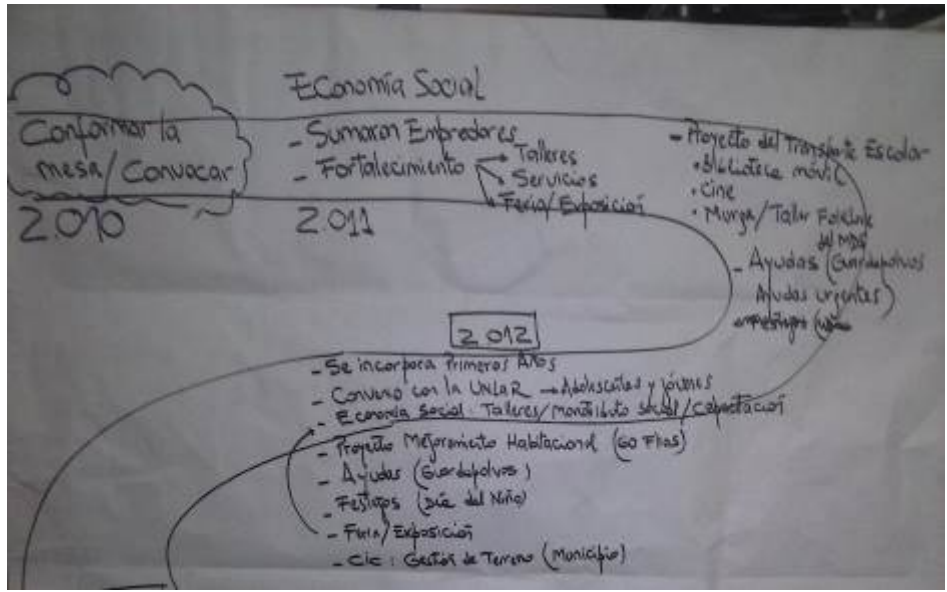 Economía Social
Conformar la
mesa/Convocar
2.010
- Sumaron Empredores
- Fortalecimiento
Talleres
Servicios
Feria/Exposición
2.011
- Proyecto del Transporte Escolar
• Biblioteca móvil
• Cine
• Murga/Taller Folklore
del MDS
- Ayudas (Guardapolvos
Ayudas urgentes)
2.012
- Se incorpora Primeros Años
- Convenio con la UNLaR → Adolescentes y jóvenes
- Economía Social: Talleres/Monotributo social/Capacitación
- Proyecto Mejoramiento Habitacional (60 Flias)
- Ayudas (Guardapolvos)
- Festejos (Día del Niño)
- Feria/Exposición
- CIC: Gestión de Terreno (Municipio)